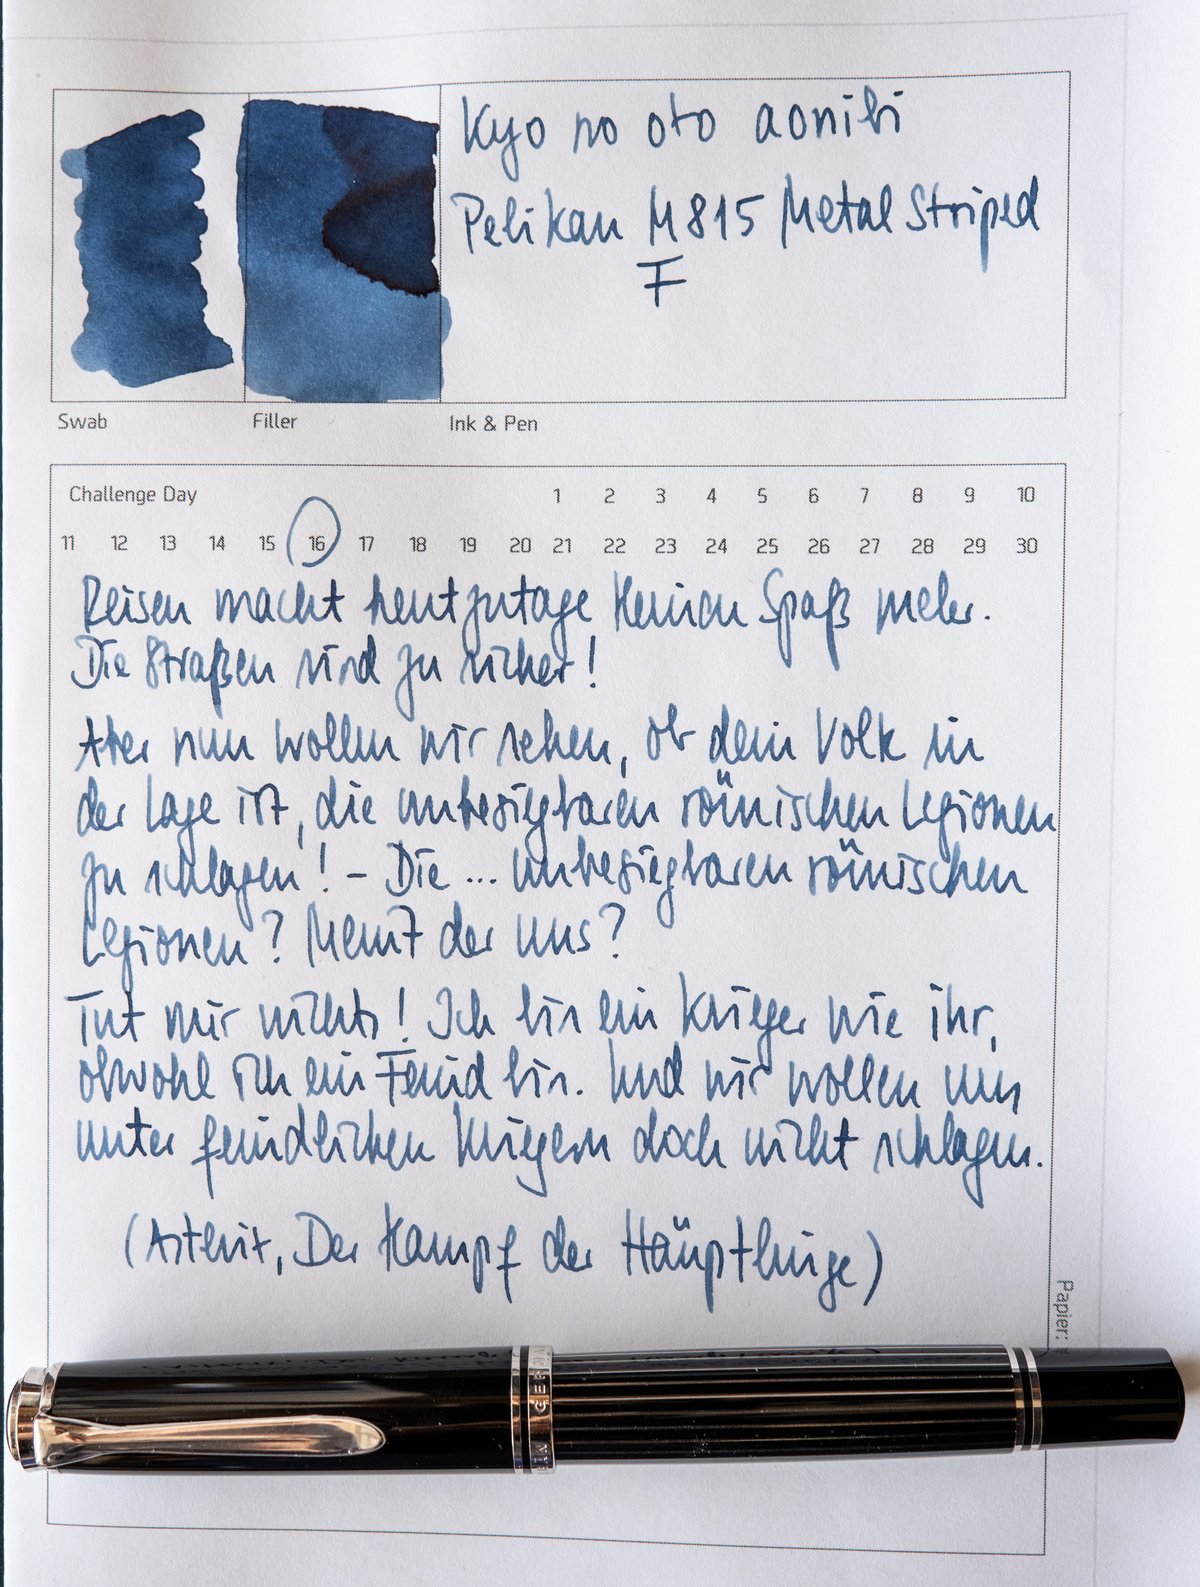 Kyo no oto aonibi
Pelikan M815 Metal Striped
F
Swab
Filler
Ink & Pen
Challenge Day 1 2 3 4 5 6 7 8 9 10
11 12 13 14 15 16 17 18 19 20 21 22 23 24 25 26 27 28 29 30
Reisen macht heutzutage keinen Spaß mehr.
Die Straßen sind zu sicher!
Aber nun wollen wir sehen, ob dein Volk in
der Lage ist, die unbesiegbaren römischen Legionen
zu schlagen! - Die ... unbesiegbaren römischen
Legionen? Meint der uns?
Tut mir nichts! Ich bin ein Krieger wie ihr,
obwohl ich ein Feind bin. Und wir wollen uns
unter feindlichen Kriegern doch nicht schlagen.
(Asterix, Der Kampf der Häuptlinge)
Papier: